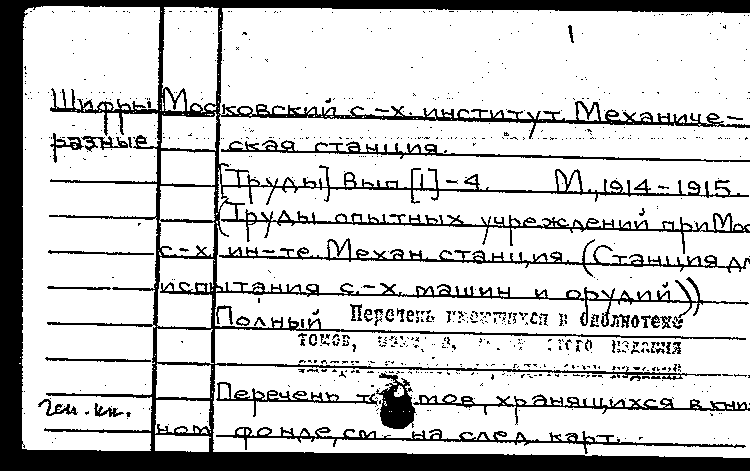 1
Шифры Московский с.-х. институт. Механиче-
разные ская станция.
[Труды] Вып. [1]-4. М., 1914-1915.
(Труды опытных учреждений при Мос
с-х ин-те. Механ. станция. (Станция дл
испытания с.-х. машин и орудий))
Полный Перечень имеющихся в библиотеке
томов, этого издания
Перечень томов, хранящихся в книж
ген. кн.
ном фонде, см. на след. карт.